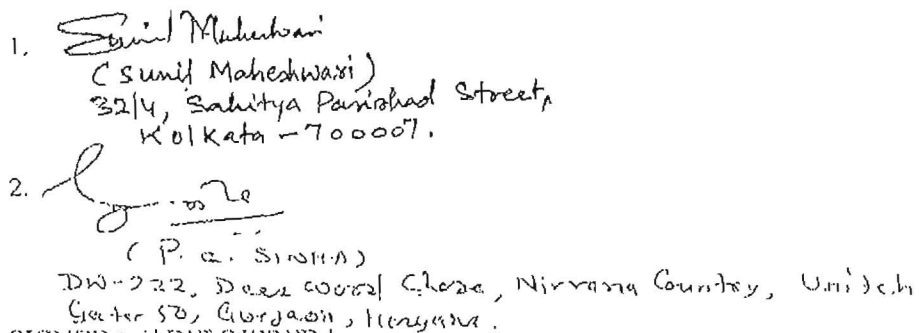 1. Sunil Maheshwari
(Sunil Maheshwari)
32/4, Sahitya Parishad Street,
Kolkata - 700007.
2.
(P. a. SINHA)
DW-222, Deer wood Chase, Nirvana Country, Unitech
Sector 50, Gurgaon, Haryana.